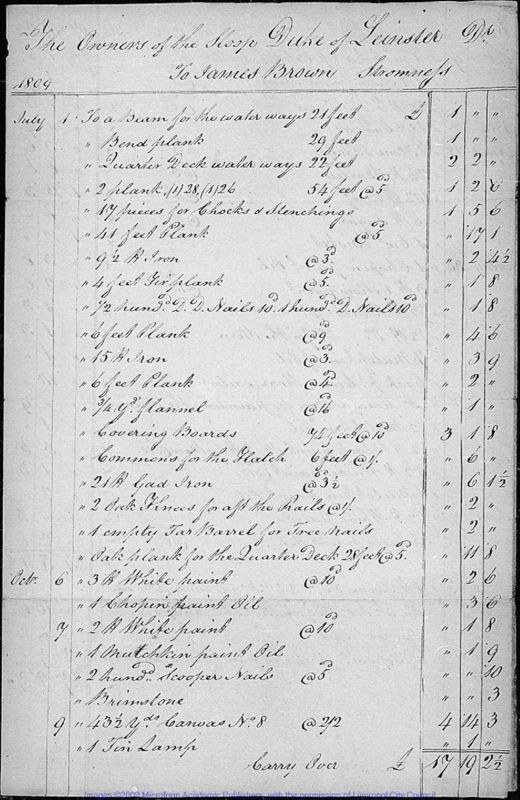 The Owners of the Sloop Duke of Leinster Dr.
1809 To James Brown Stromness
July 1 To a Beam for the water ways 21 feet £ 1 " "
" Bend plank 29 feet 1 " "
" Quarter Deck water ways 22 feet 2 2 "
" 2 plank, (1) 28, (1) 26 54 feet @ 5d 1 2 6
" 17 pieces for Chocks & Stenchings 1 5 6
" 41 feet Plank @ 5d " 17 1
" 9½ lt Iron @ 3d " 2 4½
" 4 feet Fir plank @ 5d " 1 8
" ½ hundd. D. D. Nails 10d. 1 hundd. D. Nails 10d " 1 8
" 6 feet Plank @ 9d " 4 6
" 15 lt Iron @ 3d " 3 9
" 6 feet Plank @ 4d " 2 "
" ¾ Yd. flannel @ 16 " 1 "
" Covering Boards 74 feet @ 10d 3 1 8
" Commons for the Hatch 6 feet @ 1/. " 6 "
" 21 lt Gad Iron @ 3½ " 6 1½
" 2 Oak for aft the Rails @ 1/. " 2 "
" 1 empty Tar Barrel for Tree nails " 2 "
" Oak plank for the Quarter Deck 28 feet @ 5d. " 11 8
Octr. 6 " 3 lt White paint @ 10d " 2 6
" 1 Chopin paint Oil " 3 6
7 " 2 lt White paint @ 10d " 1 8
" 1 Mutchkin paint Oil " 1 9
" 2 hundd. Scooper Nails @ 5d " " 10
" Brimstone " " 3
9 " 43½ Yds Canvas No. 8 @ 2/2 4 14 3
" 1 Tin Lamp " 1 "
Carry Over £ 17 19 2½
Images ©2009 Microform Academic Publishers, with the permission of Liverpool City Council